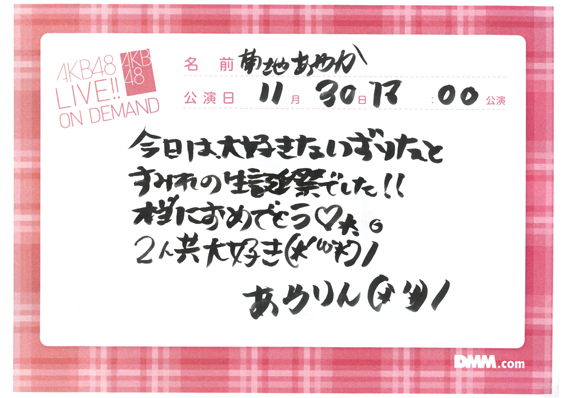 AKB48
LIVE!!
ON DEMAND
AKB
48
名 前 菊地あやか
公演日 11月30日 :00公演
今日は、大好きないずりなと
すみれの生誕祭でした!!
本当におめでとう♡
2人共大好き
あやりん
DMM.com